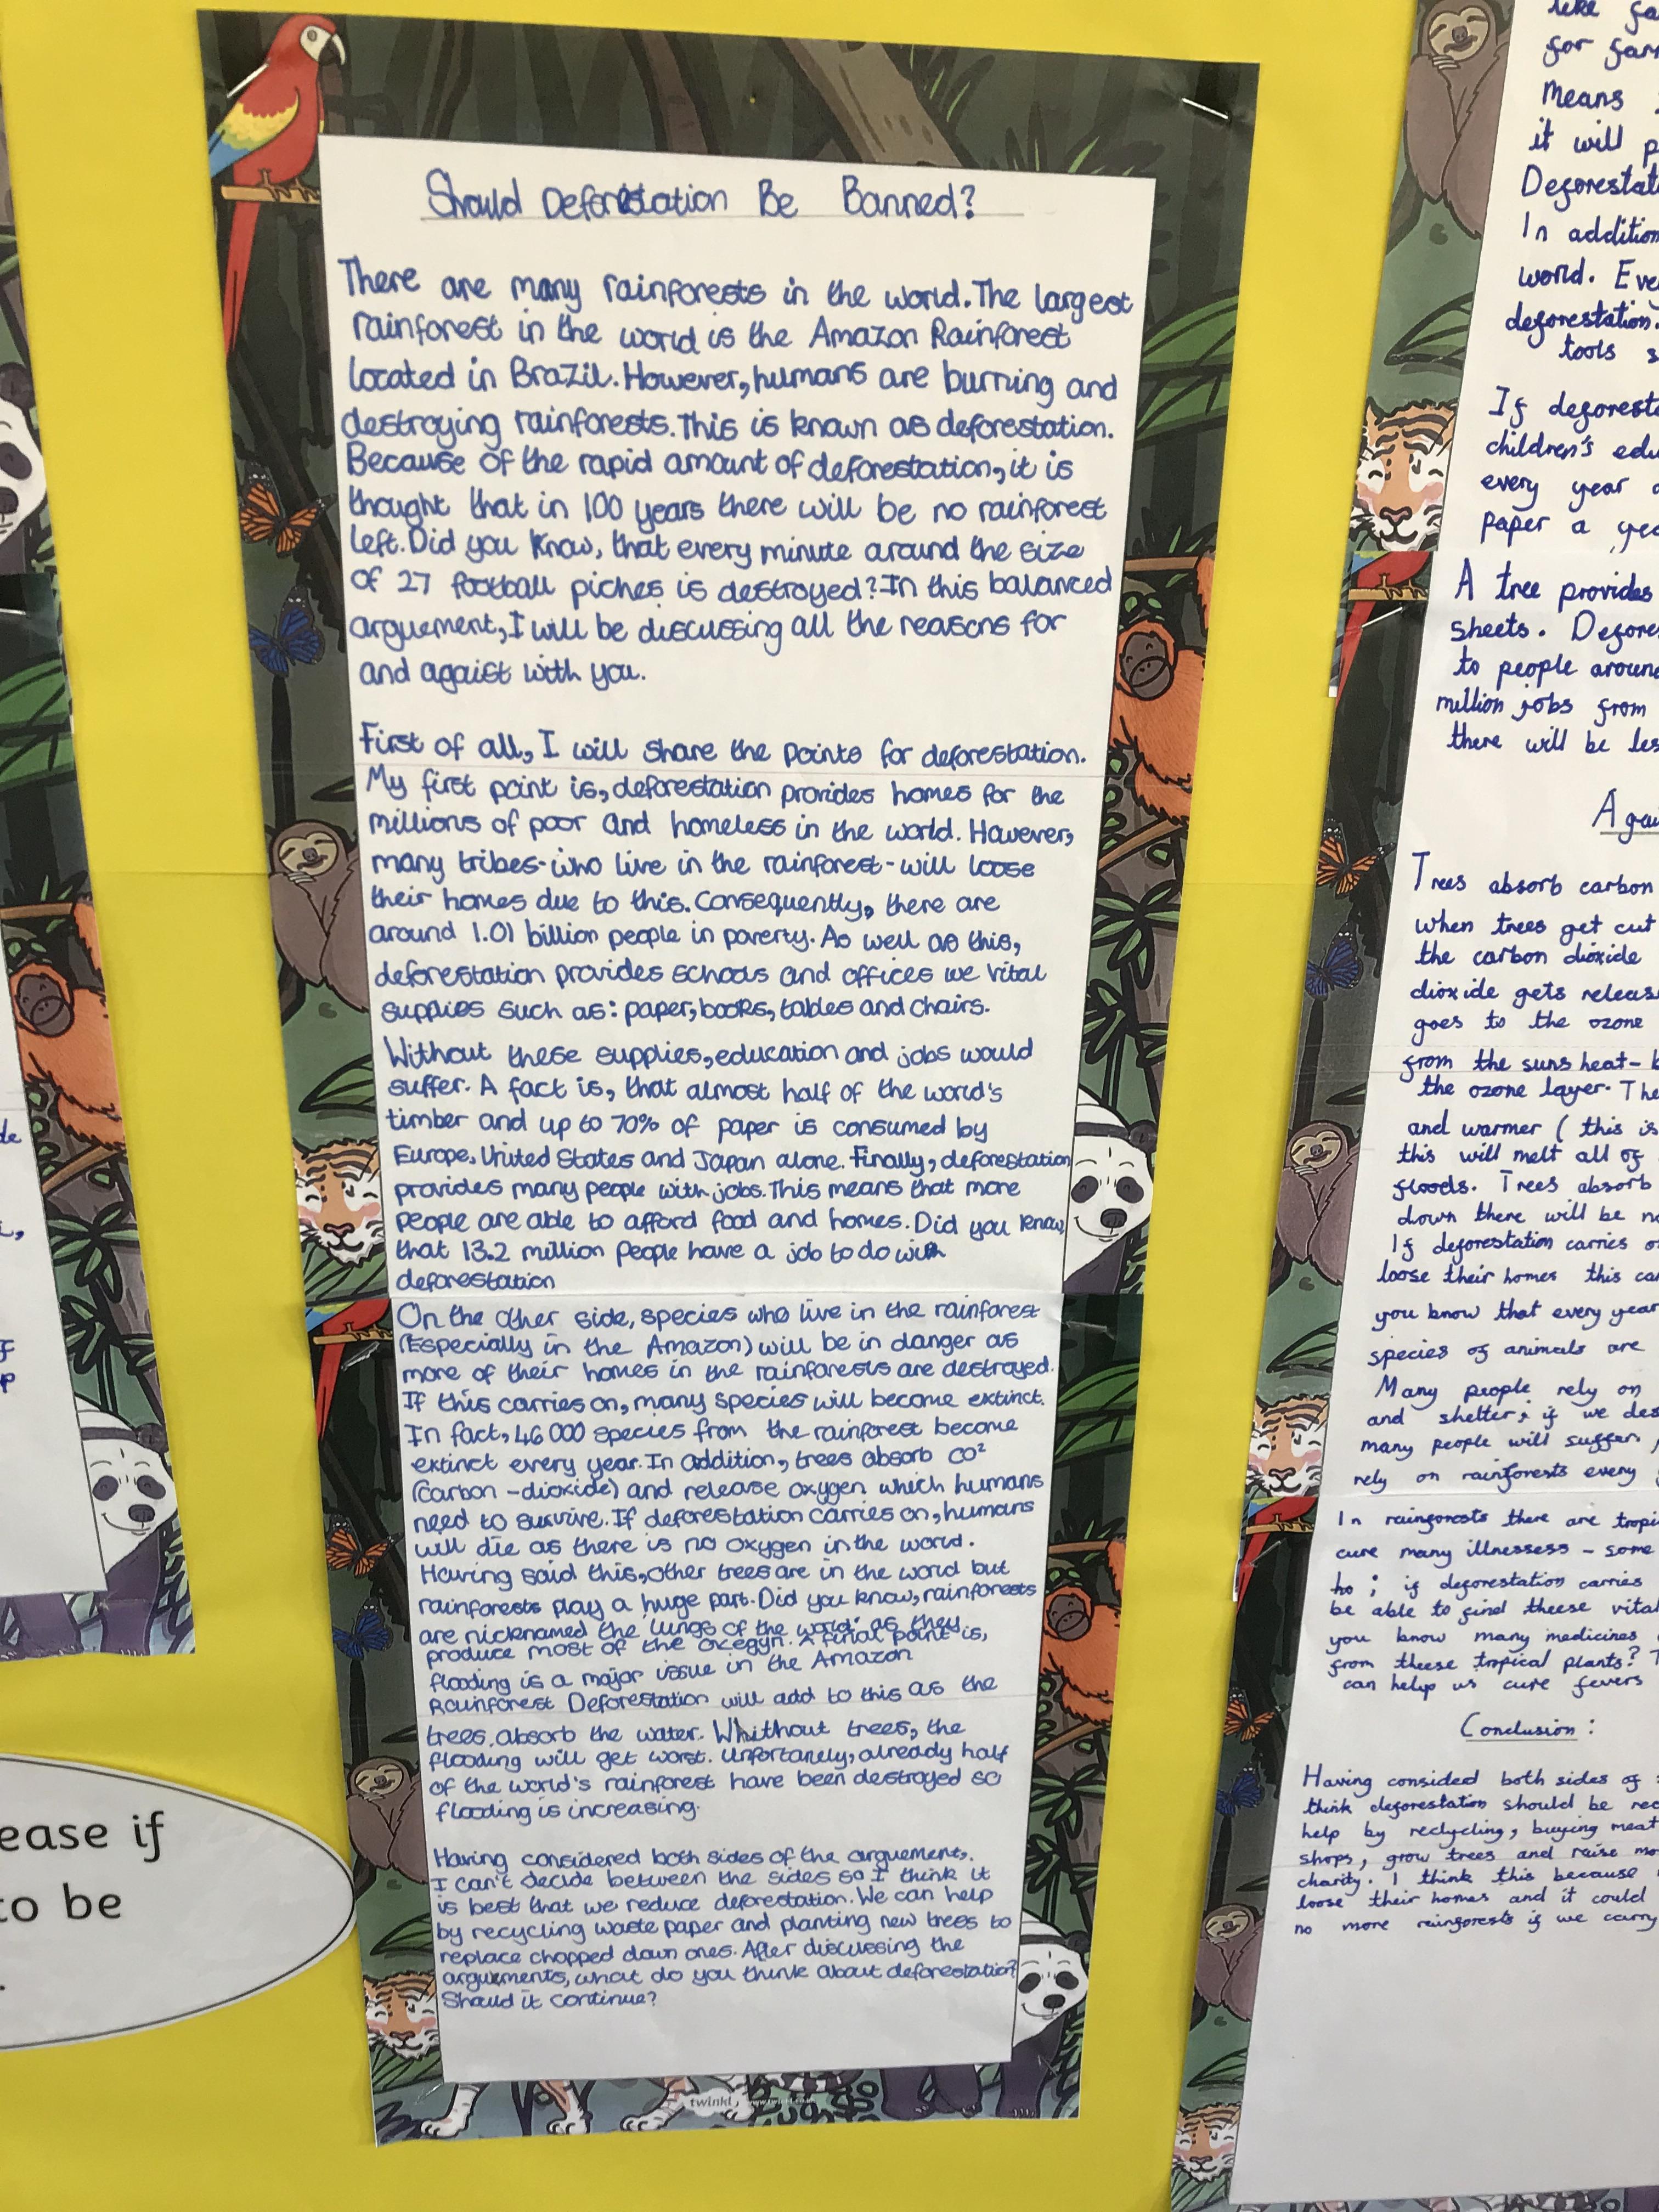 Should Deforestation Be Banned?
There are many rainforests in the world. The largest
rainforest in the world is the Amazon Rainforest
located in Brazil. However, humans are burning and
destroying rainforests. This is known as deforestation.
Because of the rapid amount of deforestation, it is
thought that in 100 years there will be no rainforest
left. Did you know, that every minute around the size
of 27 football piches is destroyed? In this balanced
arguement, I will be discussing all the reasons for
and agaist with you.
First of all, I will share the points for deforestation.
My first point is, deforestation provides homes for the
millions of poor and homeless in the world. However,
many tribes-who live in the rainforest-will loose
their homes due to this. Consequently, there are
around 1.01 billion people in poverty. As well as this,
deforestation provides schools and offices we vital
supplies such as: paper, books, tables and chairs.
Without these supplies, education and jobs would
suffer. A fact is, that almost half of the world's
timber and up to 70% of paper is consumed by
Europe, United States and Japan alone. Finally, deforestation
provides many people with jobs. This means that more
people are able to afford food and homes. Did you know,
that 13.2 million people have a job to do with
deforestation
On the other side, species who live in the rainforest
(Especially in the Amazon) will be in danger as
more of their homes in the rainforests are destroyed.
If this carries on, many species will become extinct.
In fact, 46 000 species from the rainforest become
extinct every year. In addition, trees absorb CO²
(carbon -dioxide) and release oxygen which humans
need to survive. If deforestation carries on, humans
will die as there is no oxygen in the world.
Having said this, other trees are in the world but
rainforests play a huge part. Did you know, rainforests
are nicknamed the 'lungs of the world' as they
produce most of the oxegyn. A final point is,
flooding is a major issue in the Amazon
Rainforest Deforestation will add to this as the
trees absorb the water. Whithout trees, the
flooding will get worst. Unfortanely, already half
of the world's rainforest have been destroyed so
flooding is increasing.
Having considered both sides of the arguement,
I can't decide between the sides so I think it
is best that we reduce deforestation. We can help
by recycling waste paper and planting new trees to
replace chopped down ones. After discussing the
arguements, what do you think about deforestation?
Should it continue?
twinkl
for
means
it will
In addition
world.
deforestation.
tools
children's
every year
paper a
A tree provides
sheets.
to people around
million jobs from
there will be
Trees absorb carbon
when trees get cut
the carbon dioxide
dioxide gets
goes to the ozone
from the suns heat-
the ozone layer.
and warmer ( this is
this will melt all of
floods. Trees absorb
down there will be
If deforestation carries
loose their homes this
you know that every year
species of animals are
Many people rely on
and shelter; if we
many people will suffer
rely on rainforests every
In rainforests there are
cure many illnessess - some
ho; if deforestation carries
be able to find theese
you know many medicines
from theese tropical plants?
can help us cure fevers
Conclusion:
Having consided both sides of
think deforestation should be
help by reclycling, buying meat
shops, grow trees and raise
charity. I think this because
loose their homes and it could
no more rainforests if we carry
ease if
to be